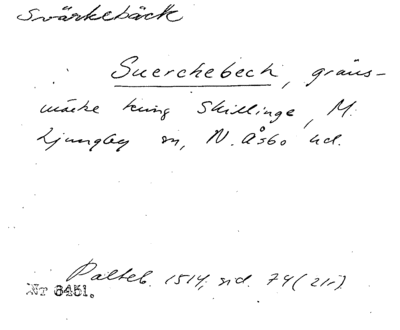 Svärkebäck
Suerchebech, gräns-
märke kring Skillinge, M.
Ljungby sn, N. Åsbo hd.
Palteb. 1514, sid. 74 (21r)
Nr 6451.